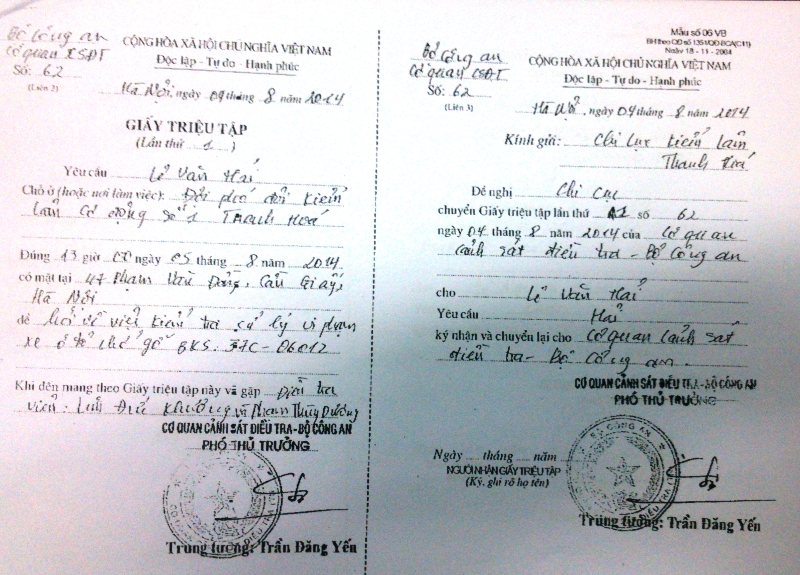 Bộ Công an
Cơ quan CSĐT
Số: 62
(Liên 2)
CỘNG HÒA XÃ HỘI CHỦ NGHĨA VIỆT NAM
Độc lập - Tự do - Hạnh phúc
Hà Nội, ngày 04 tháng 8 năm 2014
GIẤY TRIỆU TẬP
(Lần thứ 1)
Yêu cầu Lê Văn Hải
Chỗ ở (hoặc nơi làm việc): Đội phó đội kiểm
lâm cơ động số 1 Thanh Hoá
Đúng 13 giờ 00 ngày 05 tháng 8 năm 2014
có mặt tại 47 Phạm Văn Đồng, Cầu Giấy,
Hà Nội
để hỏi về việc kiểm tra xử lý vi phạm
xe ô tô chở gỗ BKS: 37C-06012
Khi đến mang theo Giấy triệu tập này và gặp Điều tra
viên: Đức Khương và Phạm Thùy Dương
CƠ QUAN CẢNH SÁT ĐIỀU TRA-BỘ CÔNG AN
PHÓ THỦ TRƯỞNG
Trung tướng: Trần Đăng Yến
Mẫu số 06 VB
BH theo QĐ số 1351/QĐ-BCA(C11)
Ngày 18 - 11 - 2004
Bộ Công an
Cơ quan CSĐT
Số: 62
(Liên 3)
CỘNG HÒA XÃ HỘI CHỦ NGHĨA VIỆT NAM
Độc lập - Tự do - Hạnh phúc
Hà Nội, ngày 04 tháng 8 năm 2014
Kính gửi: Chi cục Kiểm lâm
Thanh Hoá
Đề nghị Chi cục
chuyển Giấy triệu tập lần thứ 1 số 62
ngày 04 tháng 8 năm 2014 của Cơ quan
cảnh sát điều tra - Bộ Công an
cho Lê Văn Hải
Yêu cầu Hải
ký nhận và chuyển lại cho Cơ quan cảnh sát
điều tra - Bộ Công an.
CƠ QUAN CẢNH SÁT ĐIỀU TRA-BỘ CÔNG AN
PHÓ THỦ TRƯỞNG
Ngày tháng năm
NGƯỜI NHẬN GIẤY TRIỆU TẬP
(Ký, ghi rõ họ tên)
BỘ CÔNG AN
Trung tướng: Trần Đăng Yến